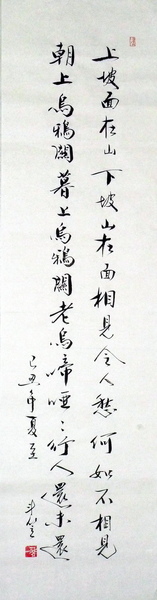 上坡面在山下坡山在面相見令人愁何如不相見
朝上烏鴉關暮上烏鴉關老烏啼啞〻行人還未還
己丑年夏至